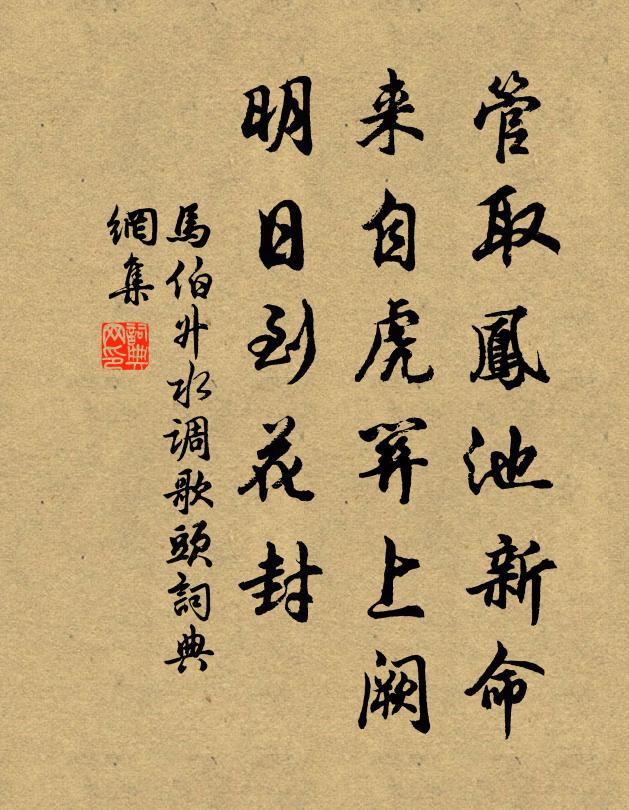 管取鳳池新命
来自虎關上闕
明日到花封
馬伯升水调歌頭詞典
網集
詞典
网印